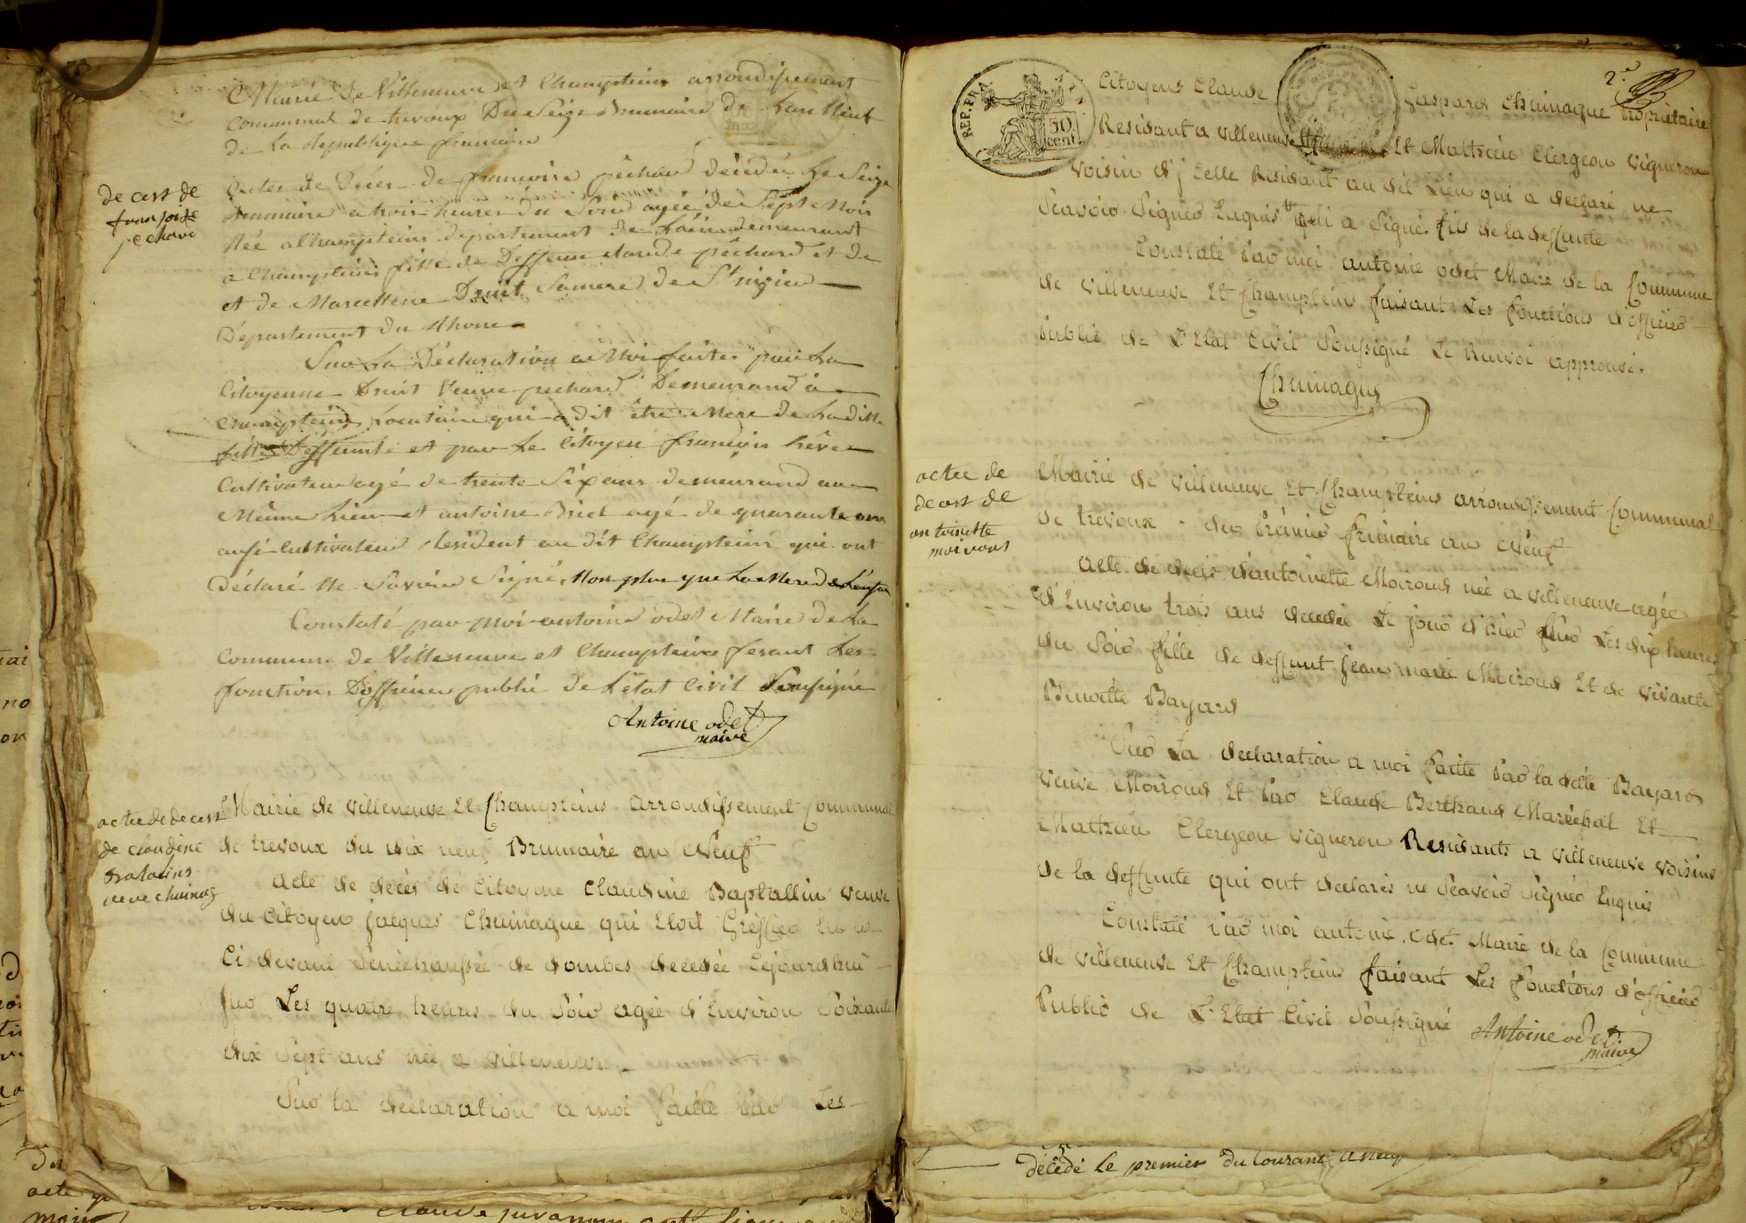 Mairie de Villeneuve et Champteins arrondissement
Communal de trevoux Du Seize Brumaire de L'an Neuf
de La Republique francaise
de cest de
franjoise
pechard
Acte de Décès de francoise pechard décédé Le Seize
brumaire a trois heures du Soir agée de Sept Mois
Née a Champteins departement de L'ain demeurant
a Champteins fille de Deffeunt claude péchard et de
et de Marcellene Druit Samere de St
Departement du Rhone
Sur La Déclaration a Moi faites par La
Citoyenne Druit Veuve pechard Demeurand a
Champteins Locataire qui a dit être Mere de La ditte
fille Deffeunte et par Le Citoyen francois
Cultivateur agé de trente Six ans demeurand au
Même Lieu et antoine Bried agé de quarante ans
ausi Cultivateur Resident au dit Champteins qui ont
Déclaré Ne Savoire Signé Non plus que La Mere de L'enfan
Constaté par Moi antoine odet Maire de La
Commune de Villeneuve et Champteins fesant Les
fonctions D'officier publié de L'état Civil Sousigné
Antoine odet
maire
actee de decest
de claudine
veuve chuinag
Mairie de Villeneuve Et Champteins Arrondissement Communal
de trevoux du dix neuf Brumaire an Neuf
Acte de décès de Citoyene Claudine Baptallin veuve
du Citoyen jacques Chuinague qui Etoit Greffier
Ci devant Sénéchaussée de dombes decedée Cejourdhui
sur Les quatre heures du Soir agée d'Environ Soixante
dix Sept ans née a Villeneuve
Sur la declaration a moi faitte par Les
REP. FRA.
50
cent
2e
Citoyens Claude Gaspard Chuinague Propriétaire
Residant a Villeneuve Et Mathieu Clergeon Vigneron
Voisin d'jcelle Residant au dit Lieu qui a declaré ne
Scavoir Signer Enquis qui a Signé fils de la deffunte
Constaté par moi antoine odet Maire de la Commune
de Villeneuve Et Champteins faisant Les fonctions d'officier
Public de L'Etat Civil Soussigné Le Renvoi approuvé.
Chuinague
actee de
decest de
antoinette
moiroud
Mairie de Villeneuve Et Champteins arrondissement Communal
de trevoux du Premier frimaire an Neuf
Acte de décès d'antoinette Moiroud née a Villeneuve agée
d'Environ trois ans decedée Le jour d'hier sur Les dix heures
du Soir fille de deffunt jean marie Moiroud Et de vivante
Benoitte Bayard
Sur La declaration a moi faitte par la ditte Bayard
veuve Moiroud Et par Claude Berthaud Maréchal Et
Mathieu Clergeon Vigneron Residants a Villeneuve voisins
de la deffunte qui ont declarés ne Scavoir Signer Enquis
Constaté par moi antoine odet Maire de la Commune
de Villeneuve Et Champteins faisant Les fonctions d'officier
Public de L'Etat Civil Soussigné
Antoine odet
maire
décédé le premier du Courant